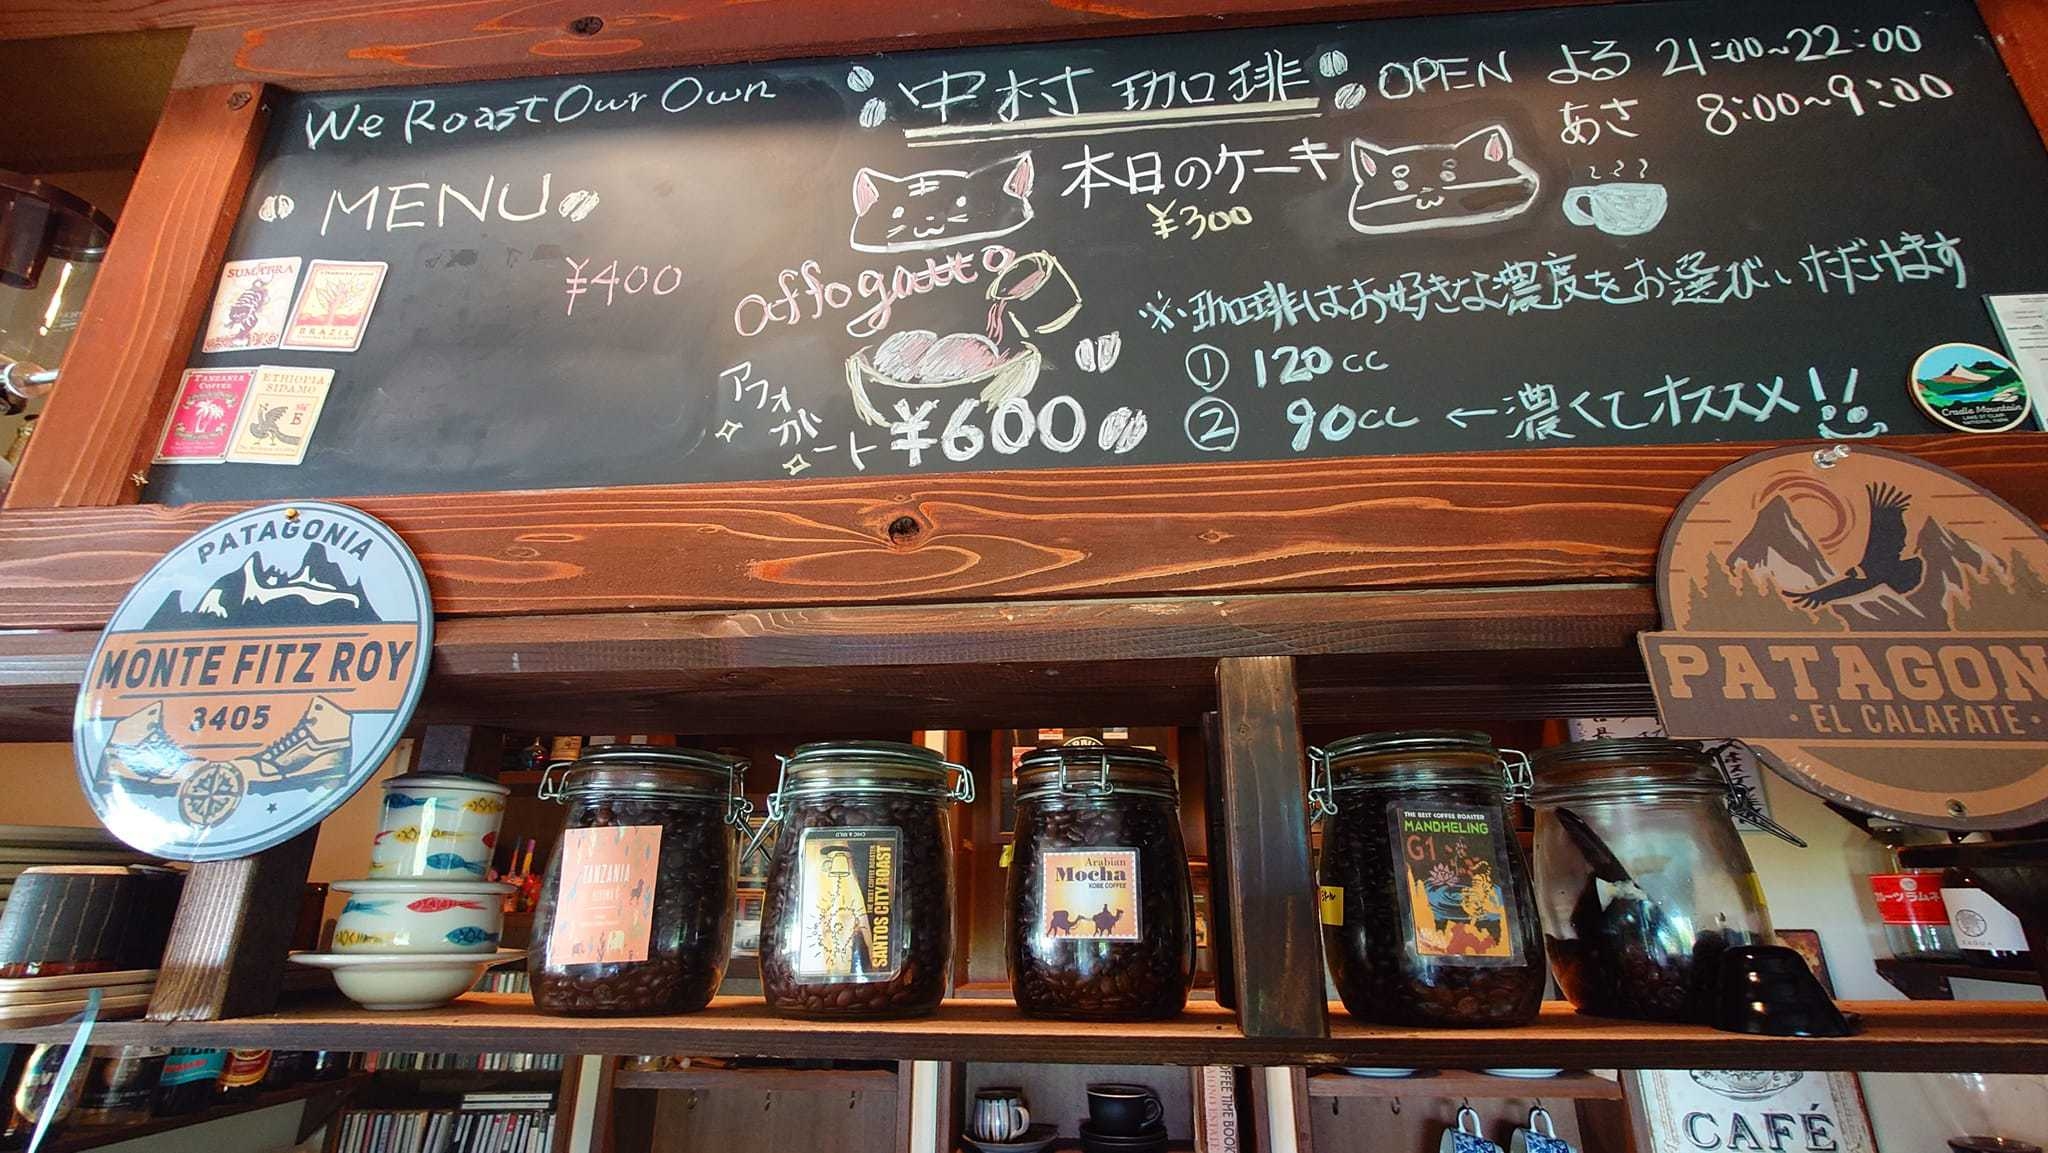 We Roast Our Own
中村珈琲
OPEN よる 21:00~22:00
あさ 8:00~9:00
MENU
¥400
本日のケーキ
¥300
affogatto
アフォガート ¥600
※珈琲はお好きな濃度をお選びいただけます
① 120cc
② 90cc ← 濃くてオススメ!!
SUMATRA
BRAZIL
TANZANIA
COFFEE
ETHIOPIA
SIDAMO
Cradle Mountain
LAKE ST CLAIR
NATIONAL PARK
PATAGONIA
MONTE FITZ ROY
3405
PATAGON
EL CALAFATE
TANZANIA
CHIC & MILD
THE BEST COFFEE ROASTER
SANTOS CITY ROAST
Arabian
Mocha
KOBE COFFEE
THE BEST COFFEE ROASTER
MANDHELING
G1
COFFEE TIME BOOK
CAFÉ